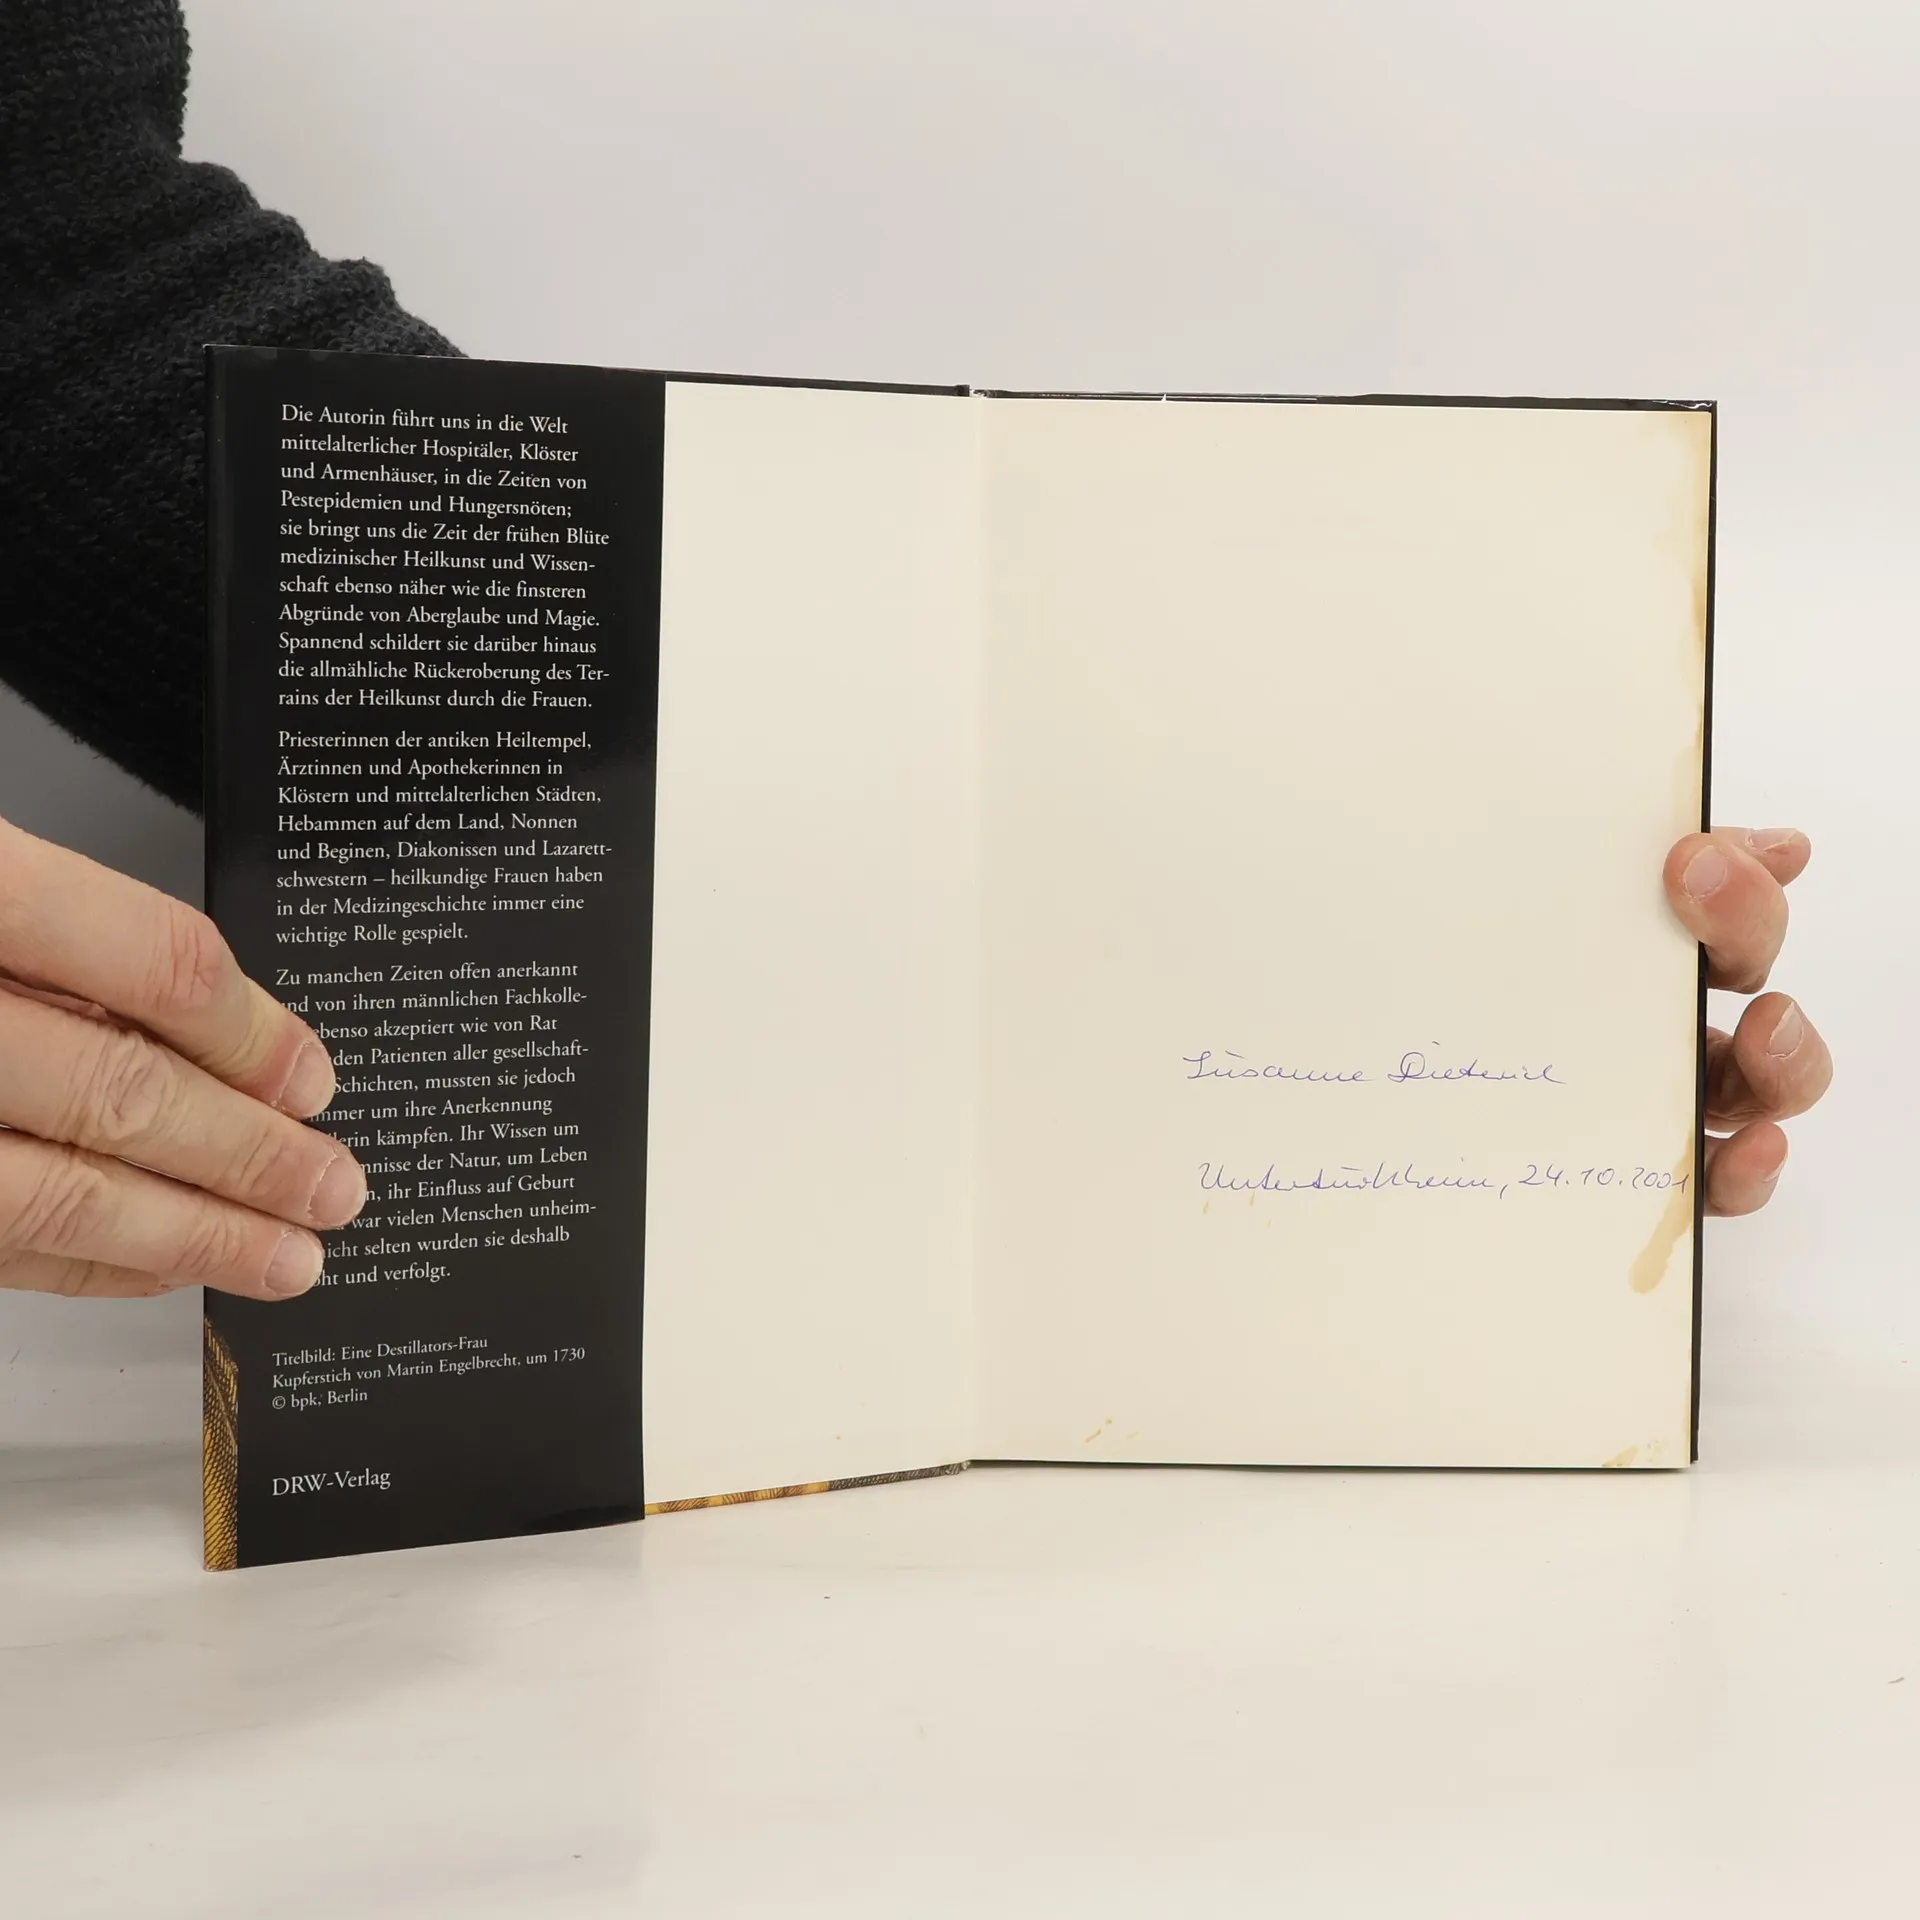 Die Autorin führt uns in die Welt
mittelalterlicher Hospitäler, Klöster
und Armenhäuser, in die Zeiten von
Pestepidemien und Hungersnöten;
sie bringt uns die Zeit der frühen Blüte
medizinischer Heilkunst und Wissen-
schaft ebenso näher wie die finsteren
Abgründe von Aberglaube und Magie.
Spannend schildert sie darüber hinaus
die allmähliche Rückeroberung des Ter-
rains der Heilkunst durch die Frauen.
Priesterinnen der antiken Heiltempel,
Ärztinnen und Apothekerinnen in
Klöstern und mittelalterlichen Städten,
Hebammen auf dem Land, Nonnen
und Beginen, Diakonissen und Lazarett-
schwestern – heilkundige Frauen haben
in der Medizingeschichte immer eine
wichtige Rolle gespielt.
Zu manchen Zeiten offen anerkannt
und von ihren männlichen Fachkolle-
ebenso akzeptiert wie von Rat
den Patienten aller gesellschaft-
Schichten, mussten sie jedoch
immer um ihre Anerkennung
kämpfen. Ihr Wissen um
der Natur, um Leben
ihr Einfluss auf Geburt
war vielen Menschen unheim-
nicht selten wurden sie deshalb
und verfolgt.
Titelbild: Eine Destillators-Frau
Kupferstich von Martin Engelbrecht, um 1730
© bpk, Berlin
DRW-Verlag
Susanne Dieterich
Untertürkheim, 24.10.2001